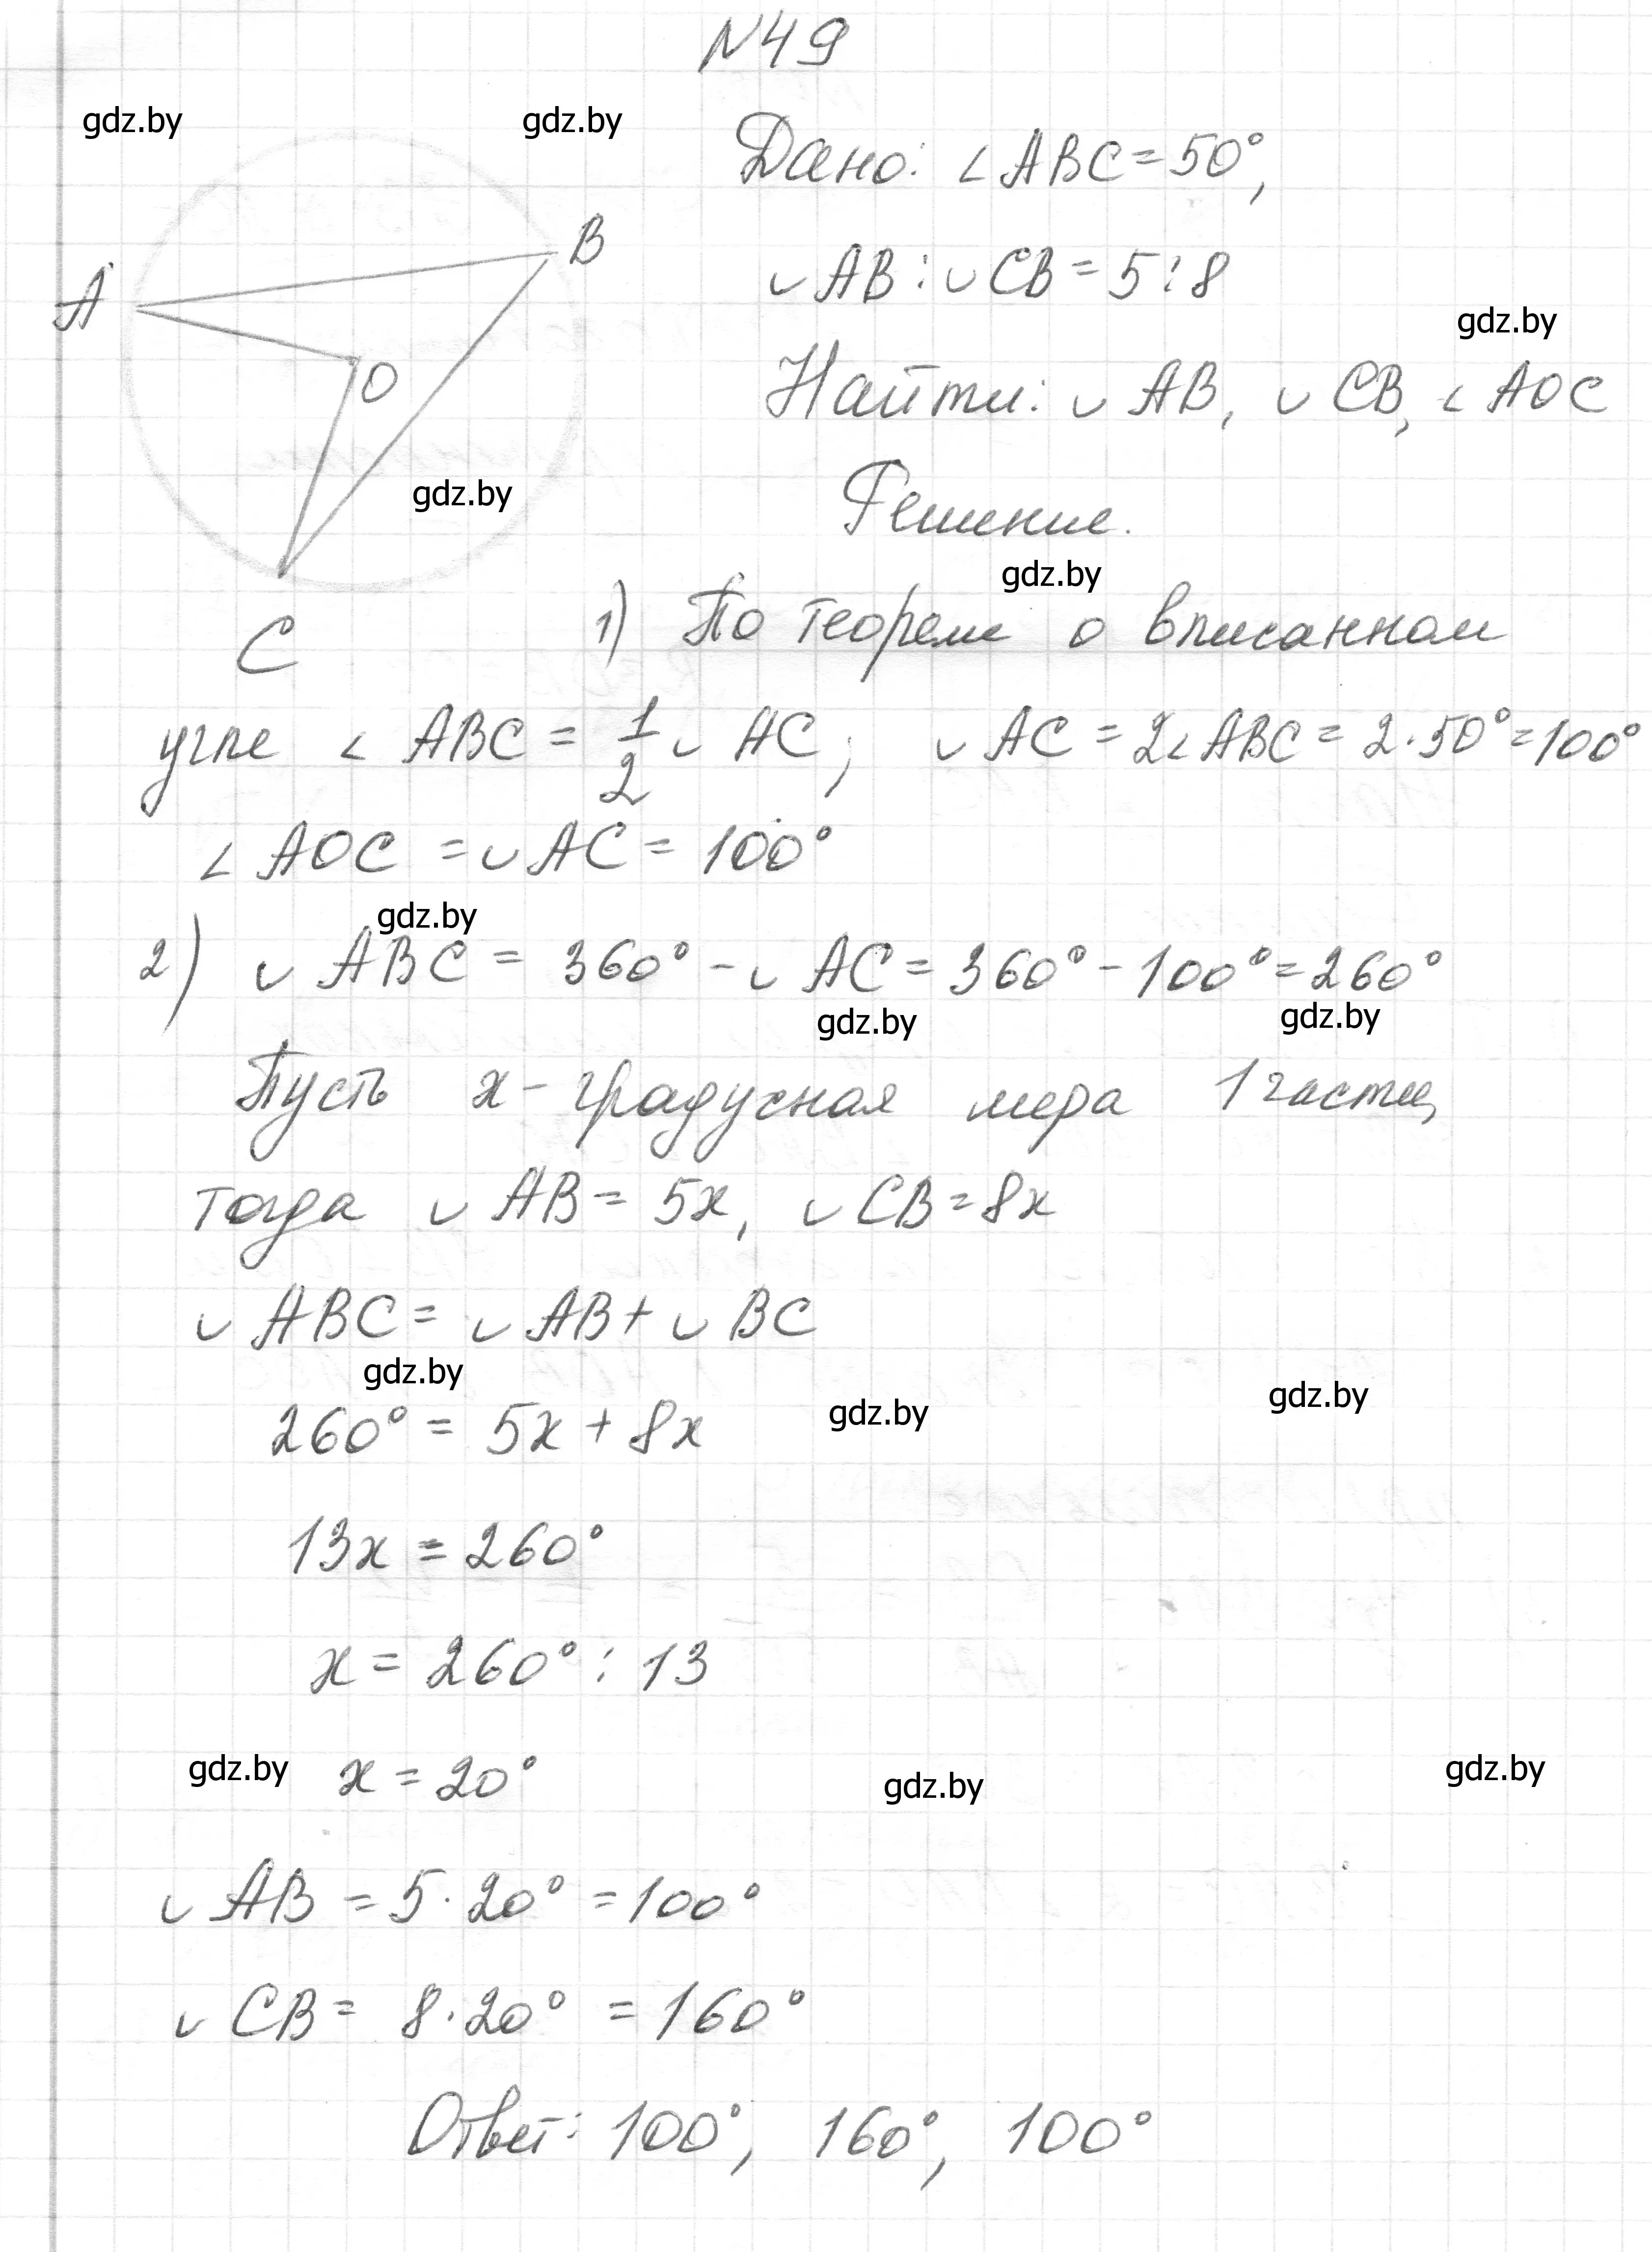 N49
gdz.by
gdz.by
Дано: ∠ABC = 50°,
B
◡AB : ◡CB = 5 : 8
A
gdz.by
Найти: ◡AB, ◡CB, ∠AOC
O
gdz.by
Решение.
gdz.by
C
1) По теореме о вписанном
угле ∠ABC = 1/2 ◡AC; ◡AC = 2∠ABC = 2·50° = 100°
∠AOC = ◡AC = 100°
gdz.by
2) ◡ABC = 360° - ◡AC = 360° - 100° = 260°
gdz.by
gdz.by
Пусть x - градусная мера 1 части,
тогда ◡AB = 5x, ◡CB = 8x
◡ABC = ◡AB + ◡BC
gdz.by
gdz.by
gdz.by
260° = 5x + 8x
13x = 260°
x = 260° : 13
gdz.by
x = 20°
gdz.by
gdz.by
◡AB = 5·20° = 100°
◡CB = 8·20° = 160°
Ответ: 100°, 160°, 100°